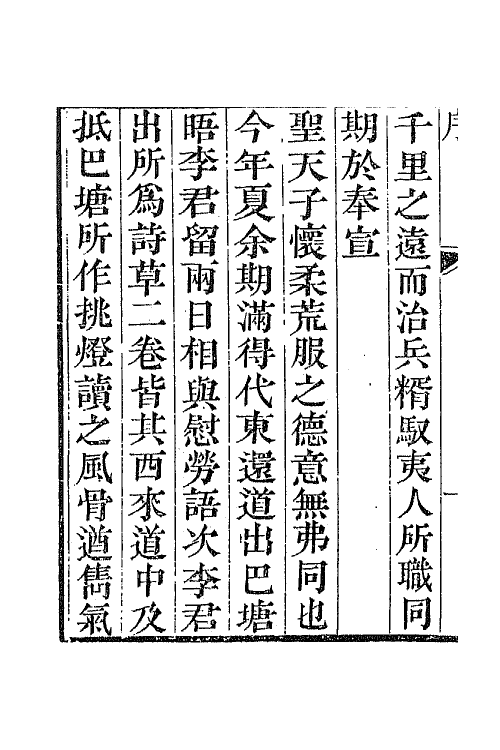 序
一
千里之遠而治兵糈馭夷人所職同
期於奉宣
聖天子懷柔荒服之德意無弗同也
今年夏余期滿得代東還道出巴塘
晤李君留兩日相與慰勞語次李君
出所為詩草二卷皆其西來道中及
抵巴塘所作挑燈讀之風骨遒雋氣